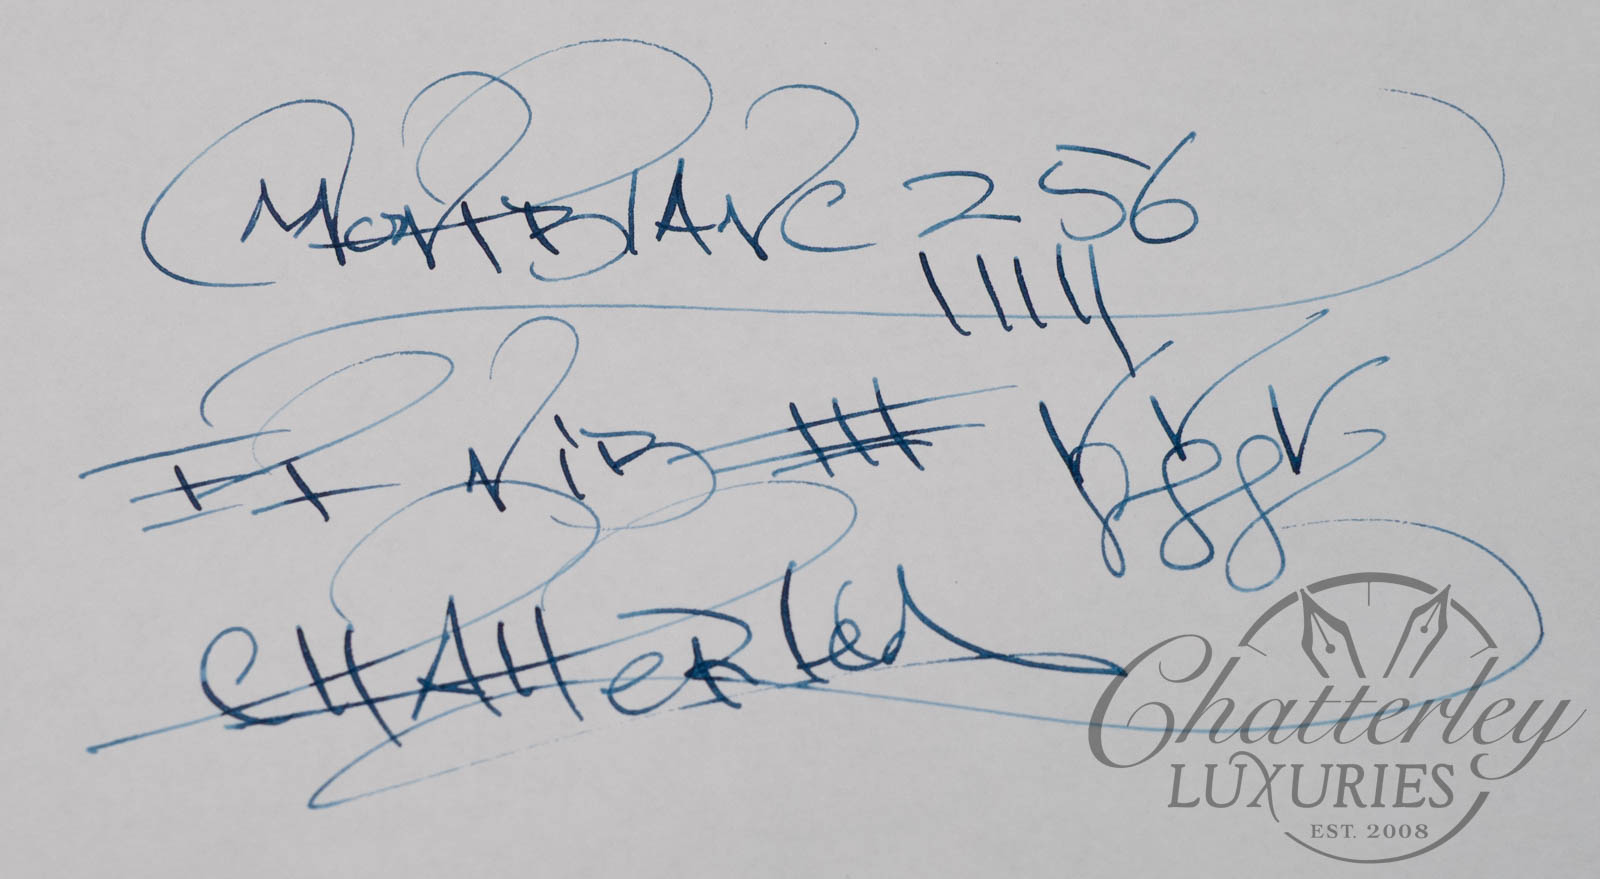 MONTBLANC 256
NIB
CHATTERLEY
Chatterley
LUXURIES
EST. 2008